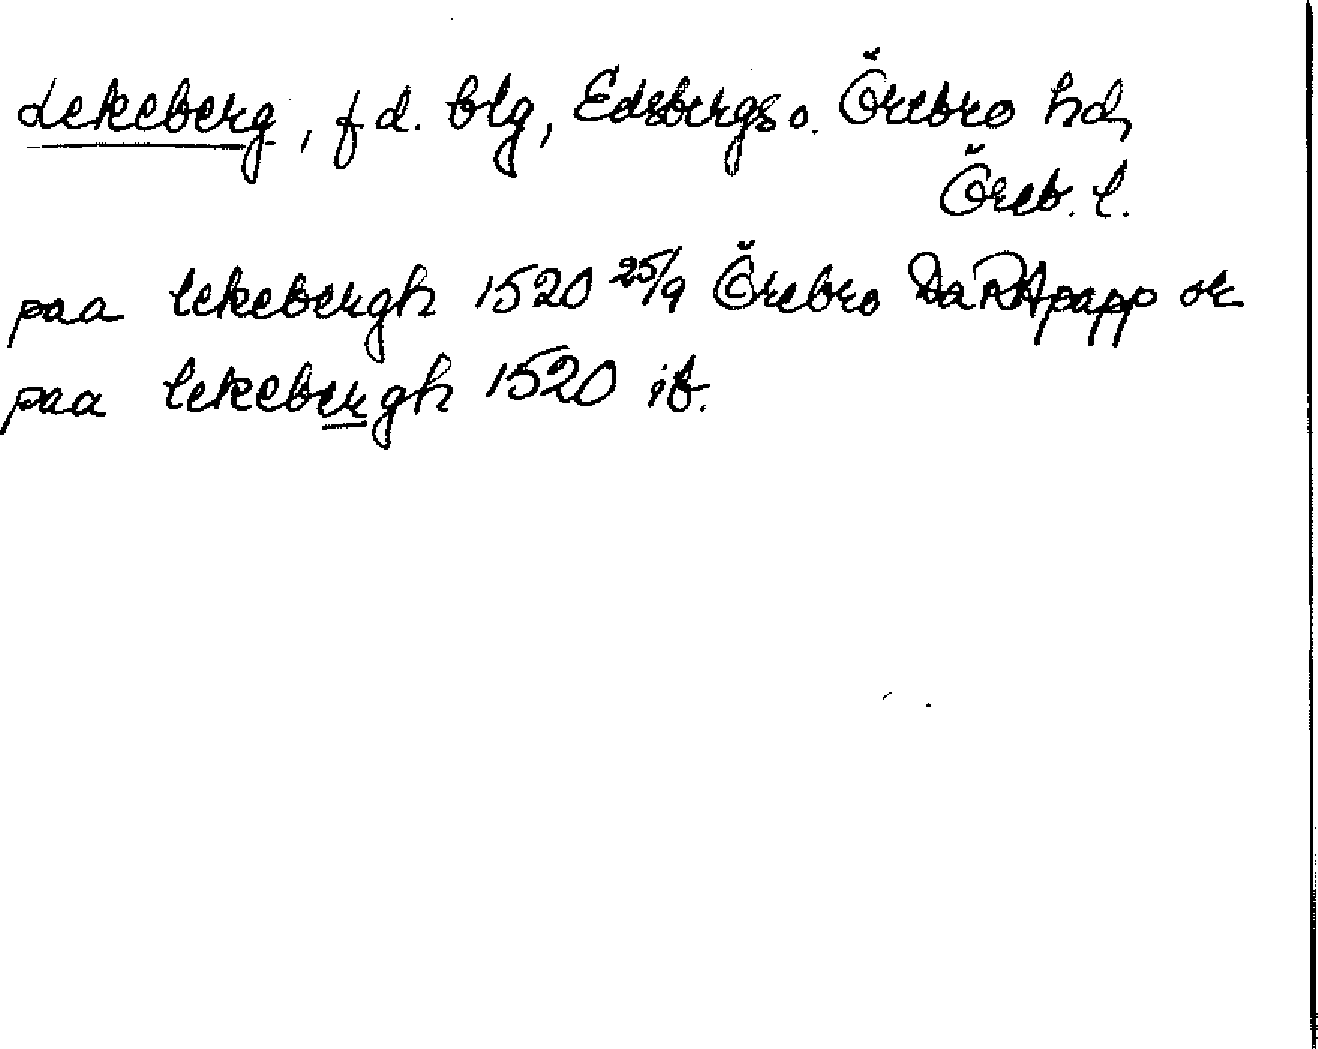 Lekeberg, f d. blg, Edsbergs o. Örebro hd,
Öreb. l.
paa lekebergh 1520 25/9 Örebro DaRApapp or
paa lekebergh 1520 ib.